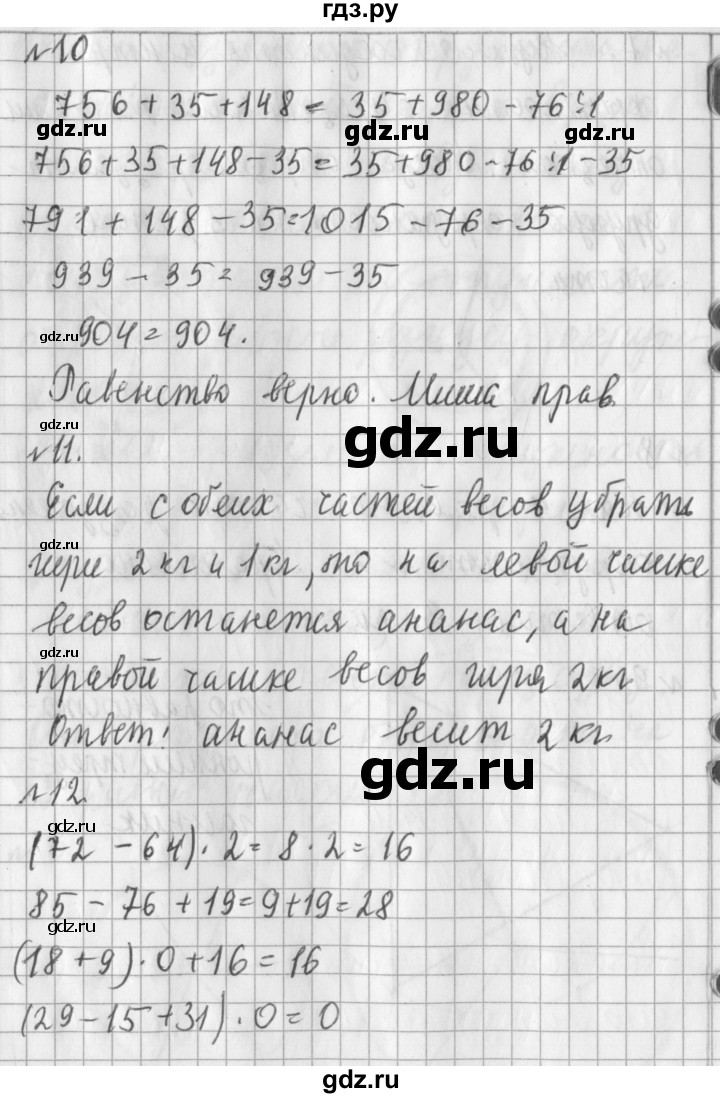 гдз.ру
№10
756 + 35 + 148 = 35 + 980 - 76 : 1
gdz.ru gdz.ru gdz.ru
756 + 35 + 148 - 35 = 35 + 980 - 76 : 1 - 35
791 + 148 - 35 = 1015 - 76 - 35
939 - 35 = 939 - 35
gdz.ru 904 = 904.
Равенство верно. Миша прав.
gdz.ru gdz.ru
№11.
Если с обеих частей весов убрать
gdz.ru
гири 2 кг и 1 кг, то на левой чашке
весов останется ананас, а на
gdz.ru
правой чашке весов гиря 2 кг
Ответ: ананас весит 2 кг.
gdz.ru gdz.ru
№12.
gdz.ru
(72 - 64) · 2 = 8 · 2 = 16
85 - 76 + 19 = 9 + 19 = 28
gdz.ru
(18 + 9) · 0 + 16 = 16
(29 - 15 + 31) · 0 = 0
gdz.ru